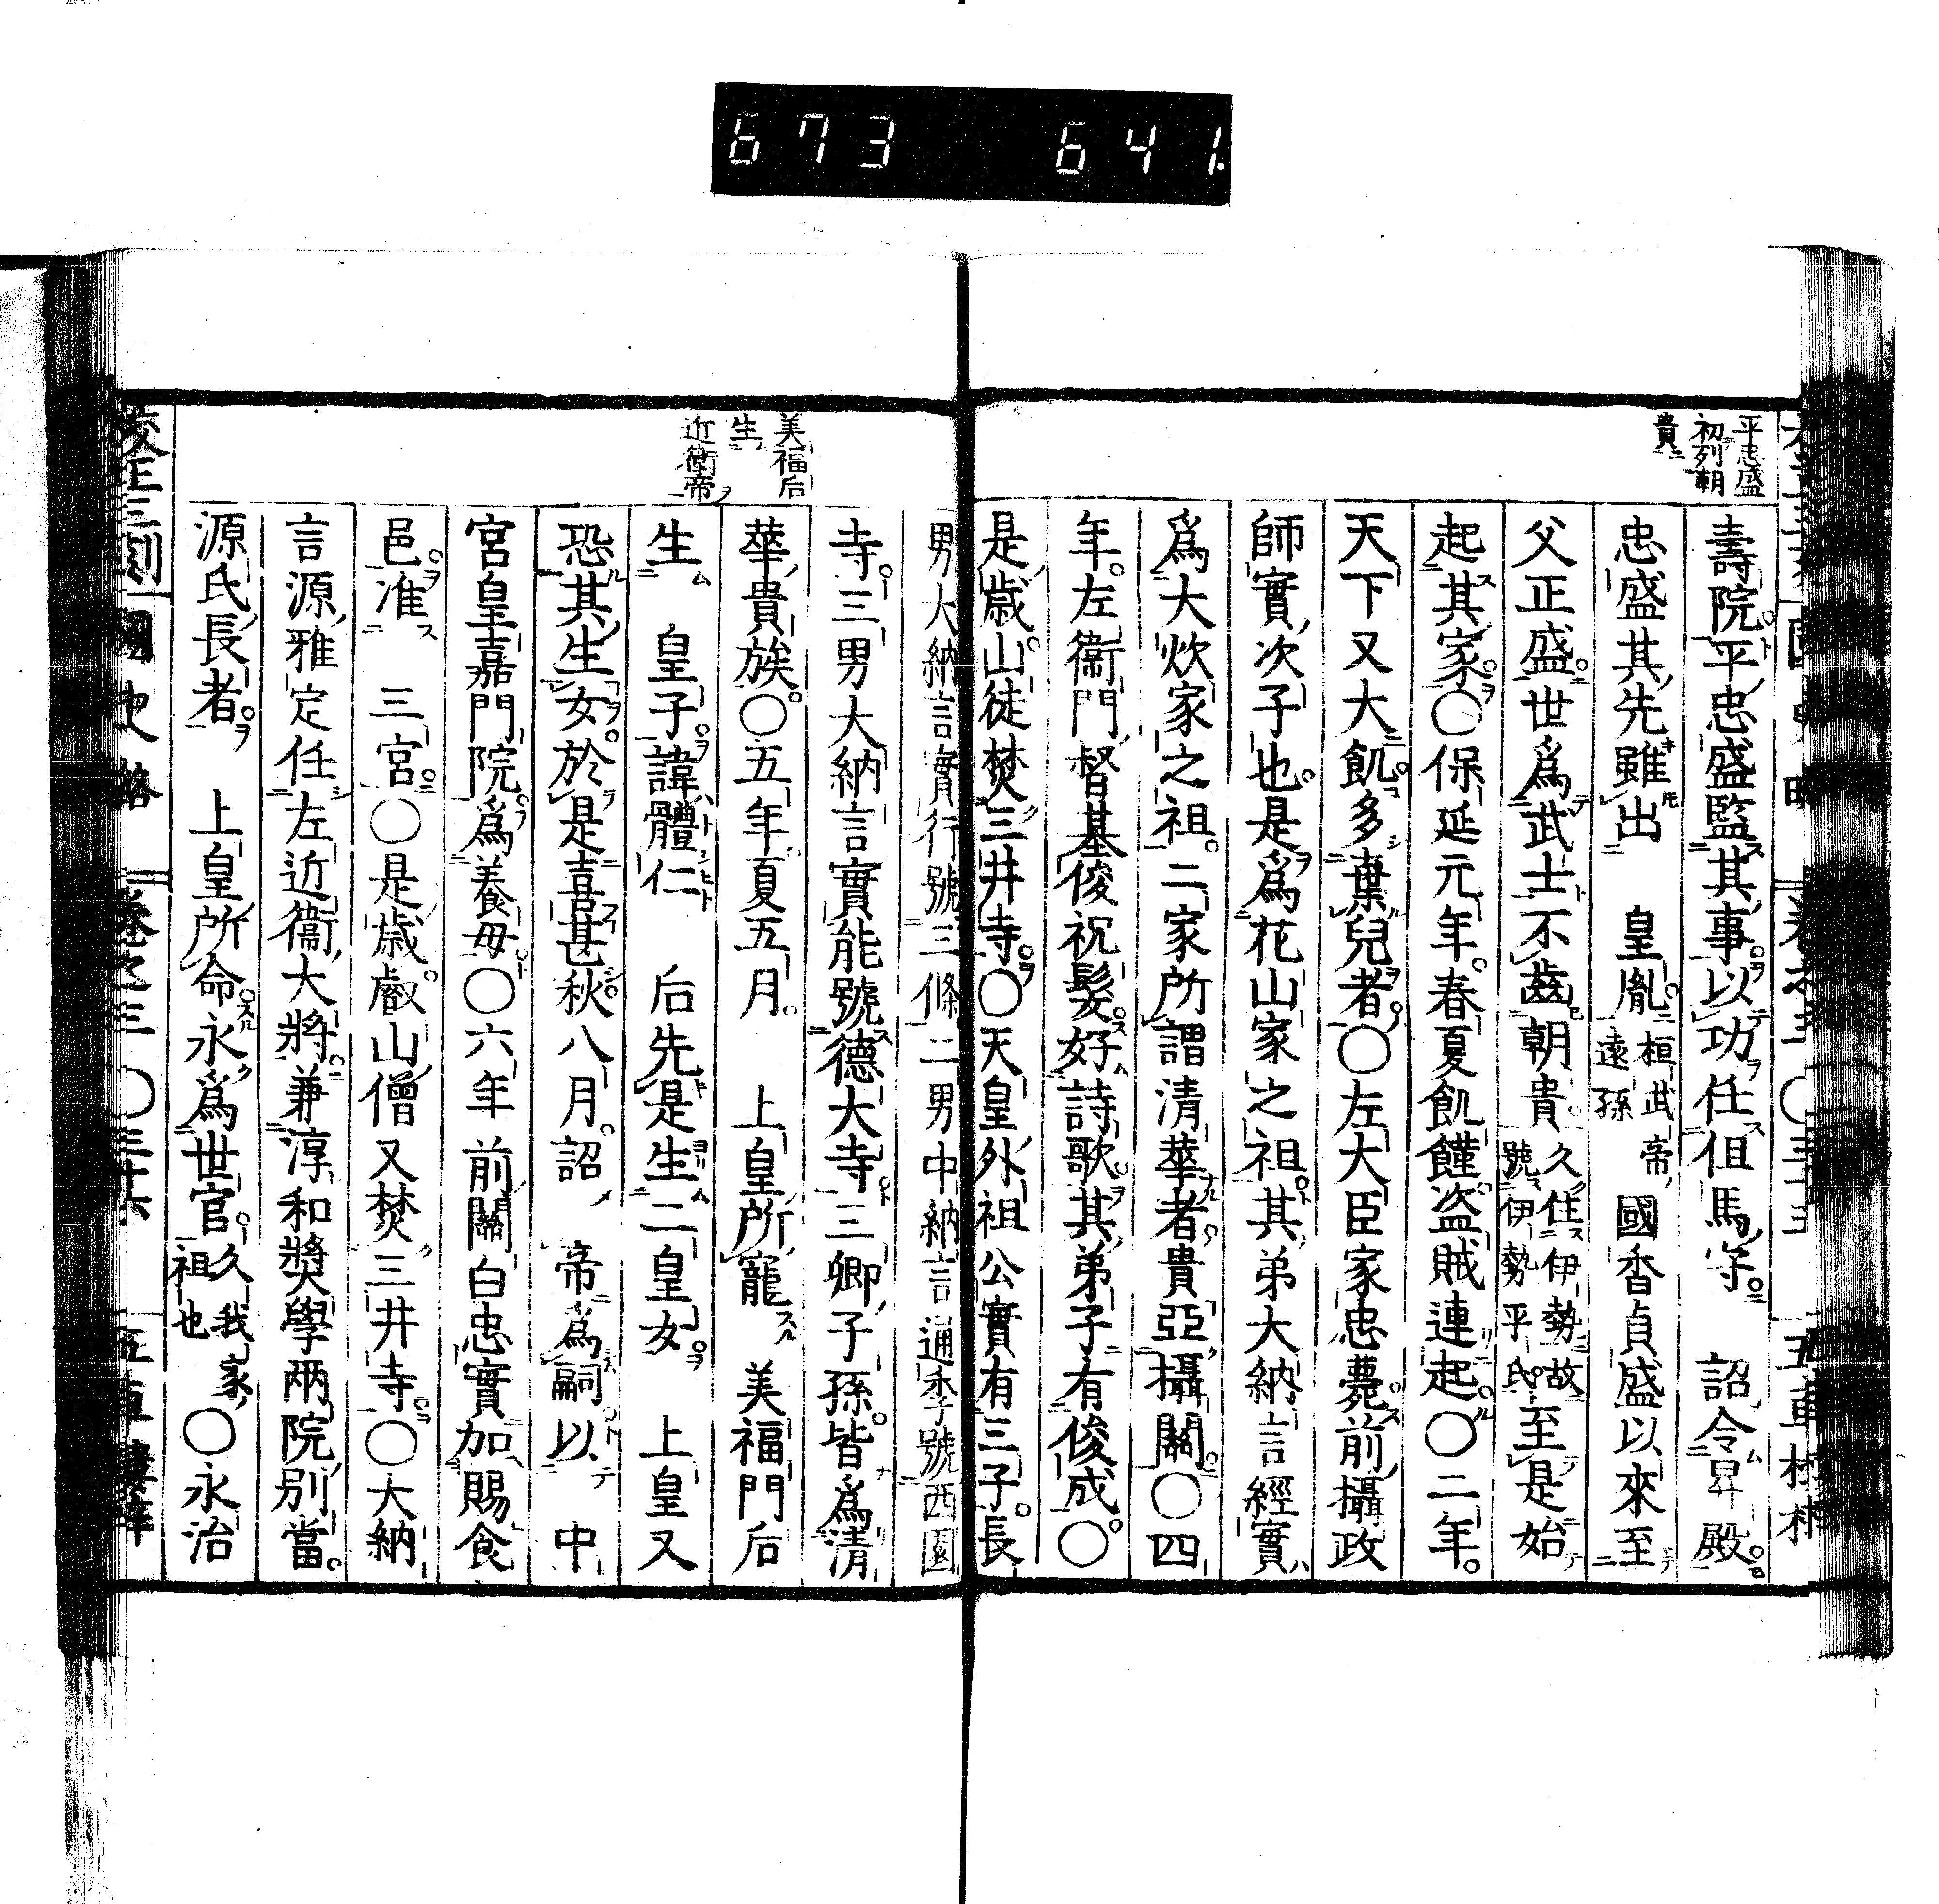 673 641.
平忠盛
初列朝
貴
壽院平忠盛監其事以功任但馬守 詔令昇殿
忠盛其先雖出 皇胤桓武帝遠孫國香貞盛以來至
父正盛世爲武士不齒朝貴久住伊勢故號伊勢平氏至是始
起其家〇保延元年春夏飢饉盜賊連起〇二年
天下又大飢多棄兒者〇左大臣家忠薨前攝政
師實次子也是爲花山家之祖其弟大納言經實
爲大炊家之祖二家所謂清華者貴亞攝關〇四
年左衞門督基俊祝髮好詩歌其弟子有俊成〇
是歳山徒焚三井寺〇天皇外祖公實有三子長
美福后
生
近衞帝
男大納言實行號三條二男中納言通季號西園
寺三男大納言實能號德大寺三卿子孫皆爲清
華貴族〇五年夏五月 上皇所寵美福門后
生 皇子諱體仁 后先是生二皇女 上皇又
恐其生女於是喜甚秋八月詔 帝爲嗣以 中
宮皇嘉門院爲養母〇六年前關白忠實加賜食
邑准 三宮〇是歳叡山僧又焚三井寺〇大納
言源雅定任左近衞大將兼淳和奬學兩院別當
源氏長者 上皇所命永爲世官久我家祖也〇永治
校正三刻國史略 卷之三 〇三十六 五車樓梓